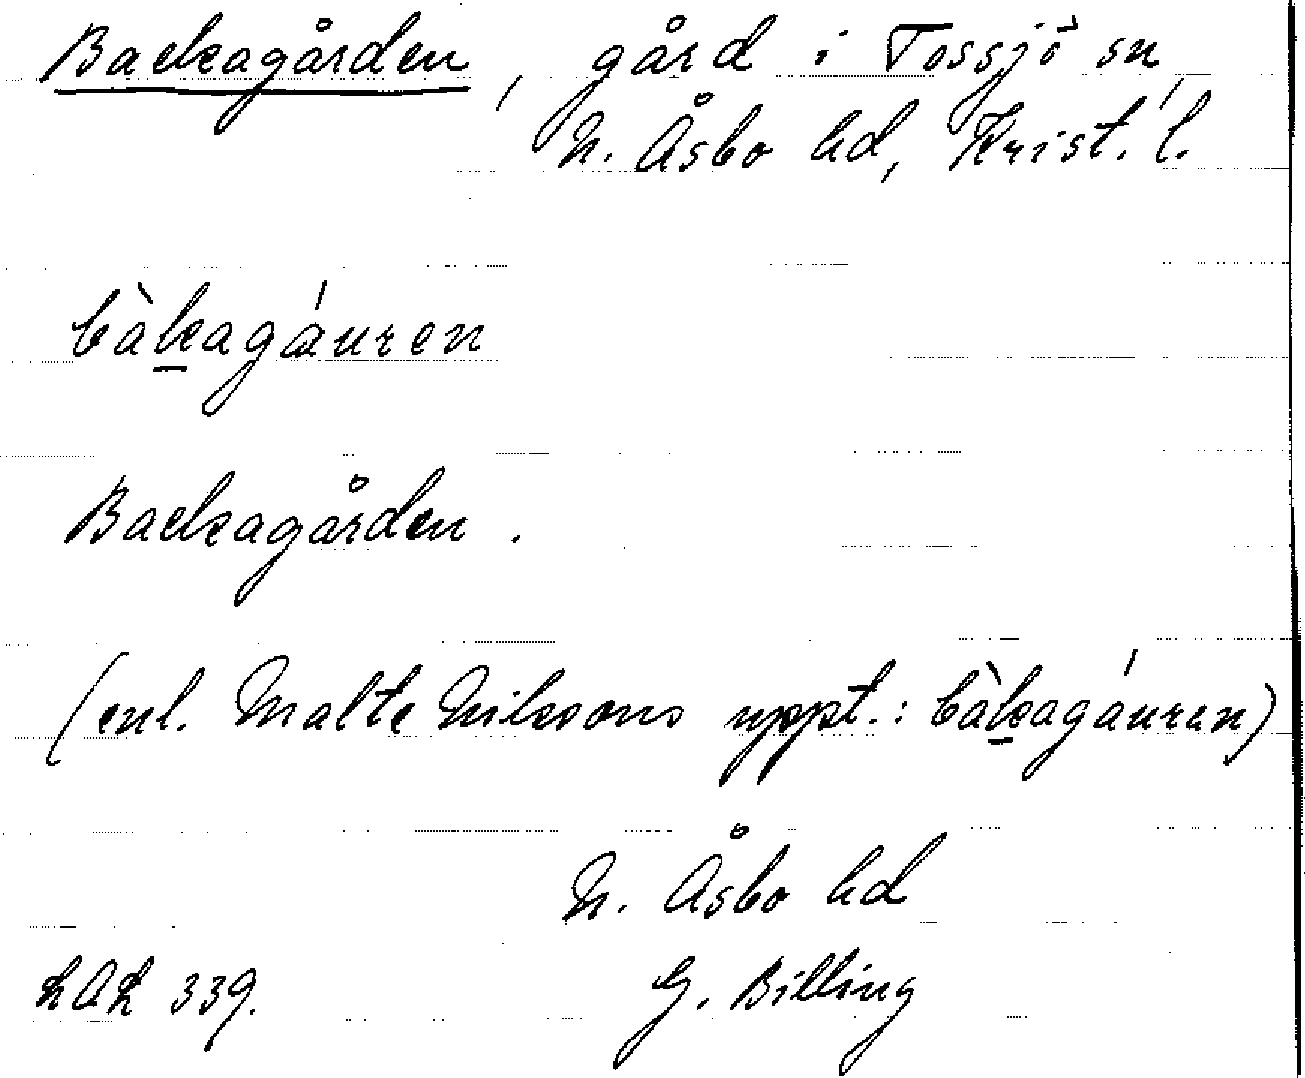 Backagården, gård i Tossjö sn,
N. Åsbo hd, Krist. l.
bàḵagáuren
Backagården.
(enl. Malte Nilssons uppt.: bàḵagáuren)
N. Åsbo hd
LAL 339. G. Billing